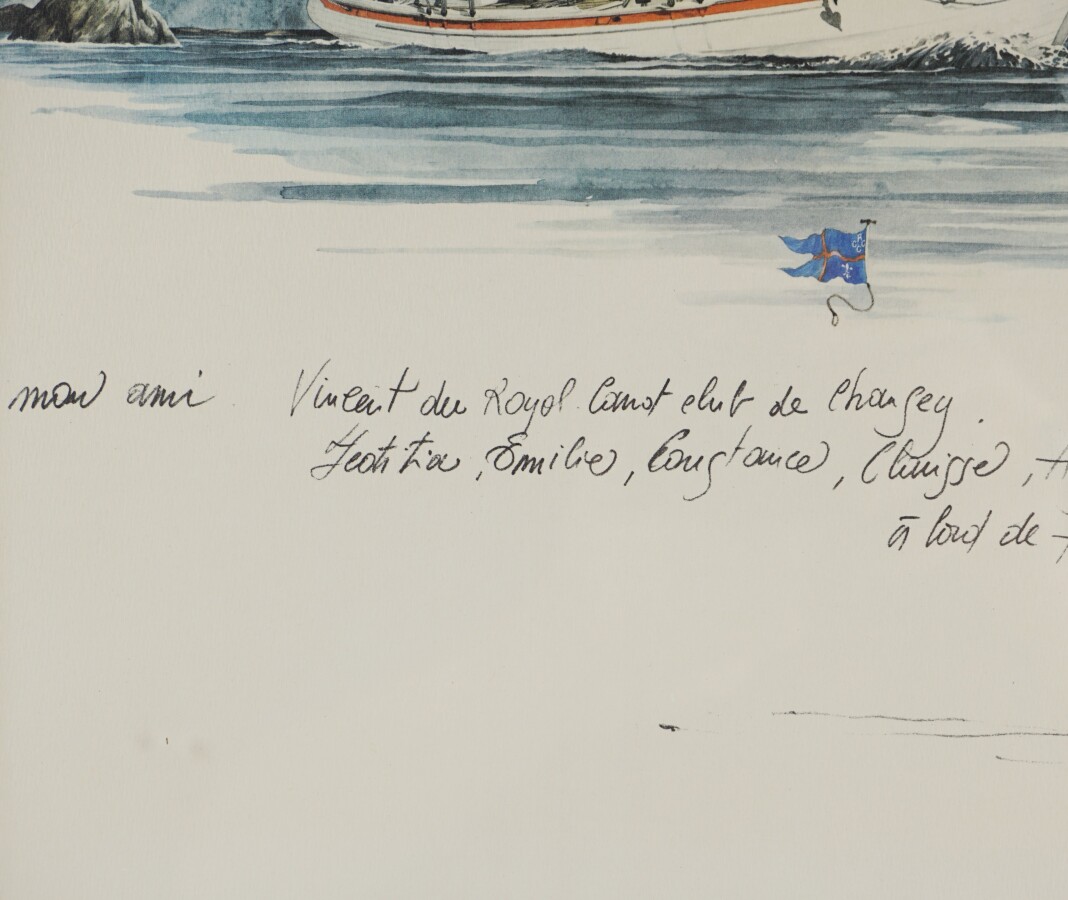 mon ami Vincent du Royal Canot club de Chausey.
Laetitia, Emilie, Constance, Clarisse,
à bord de